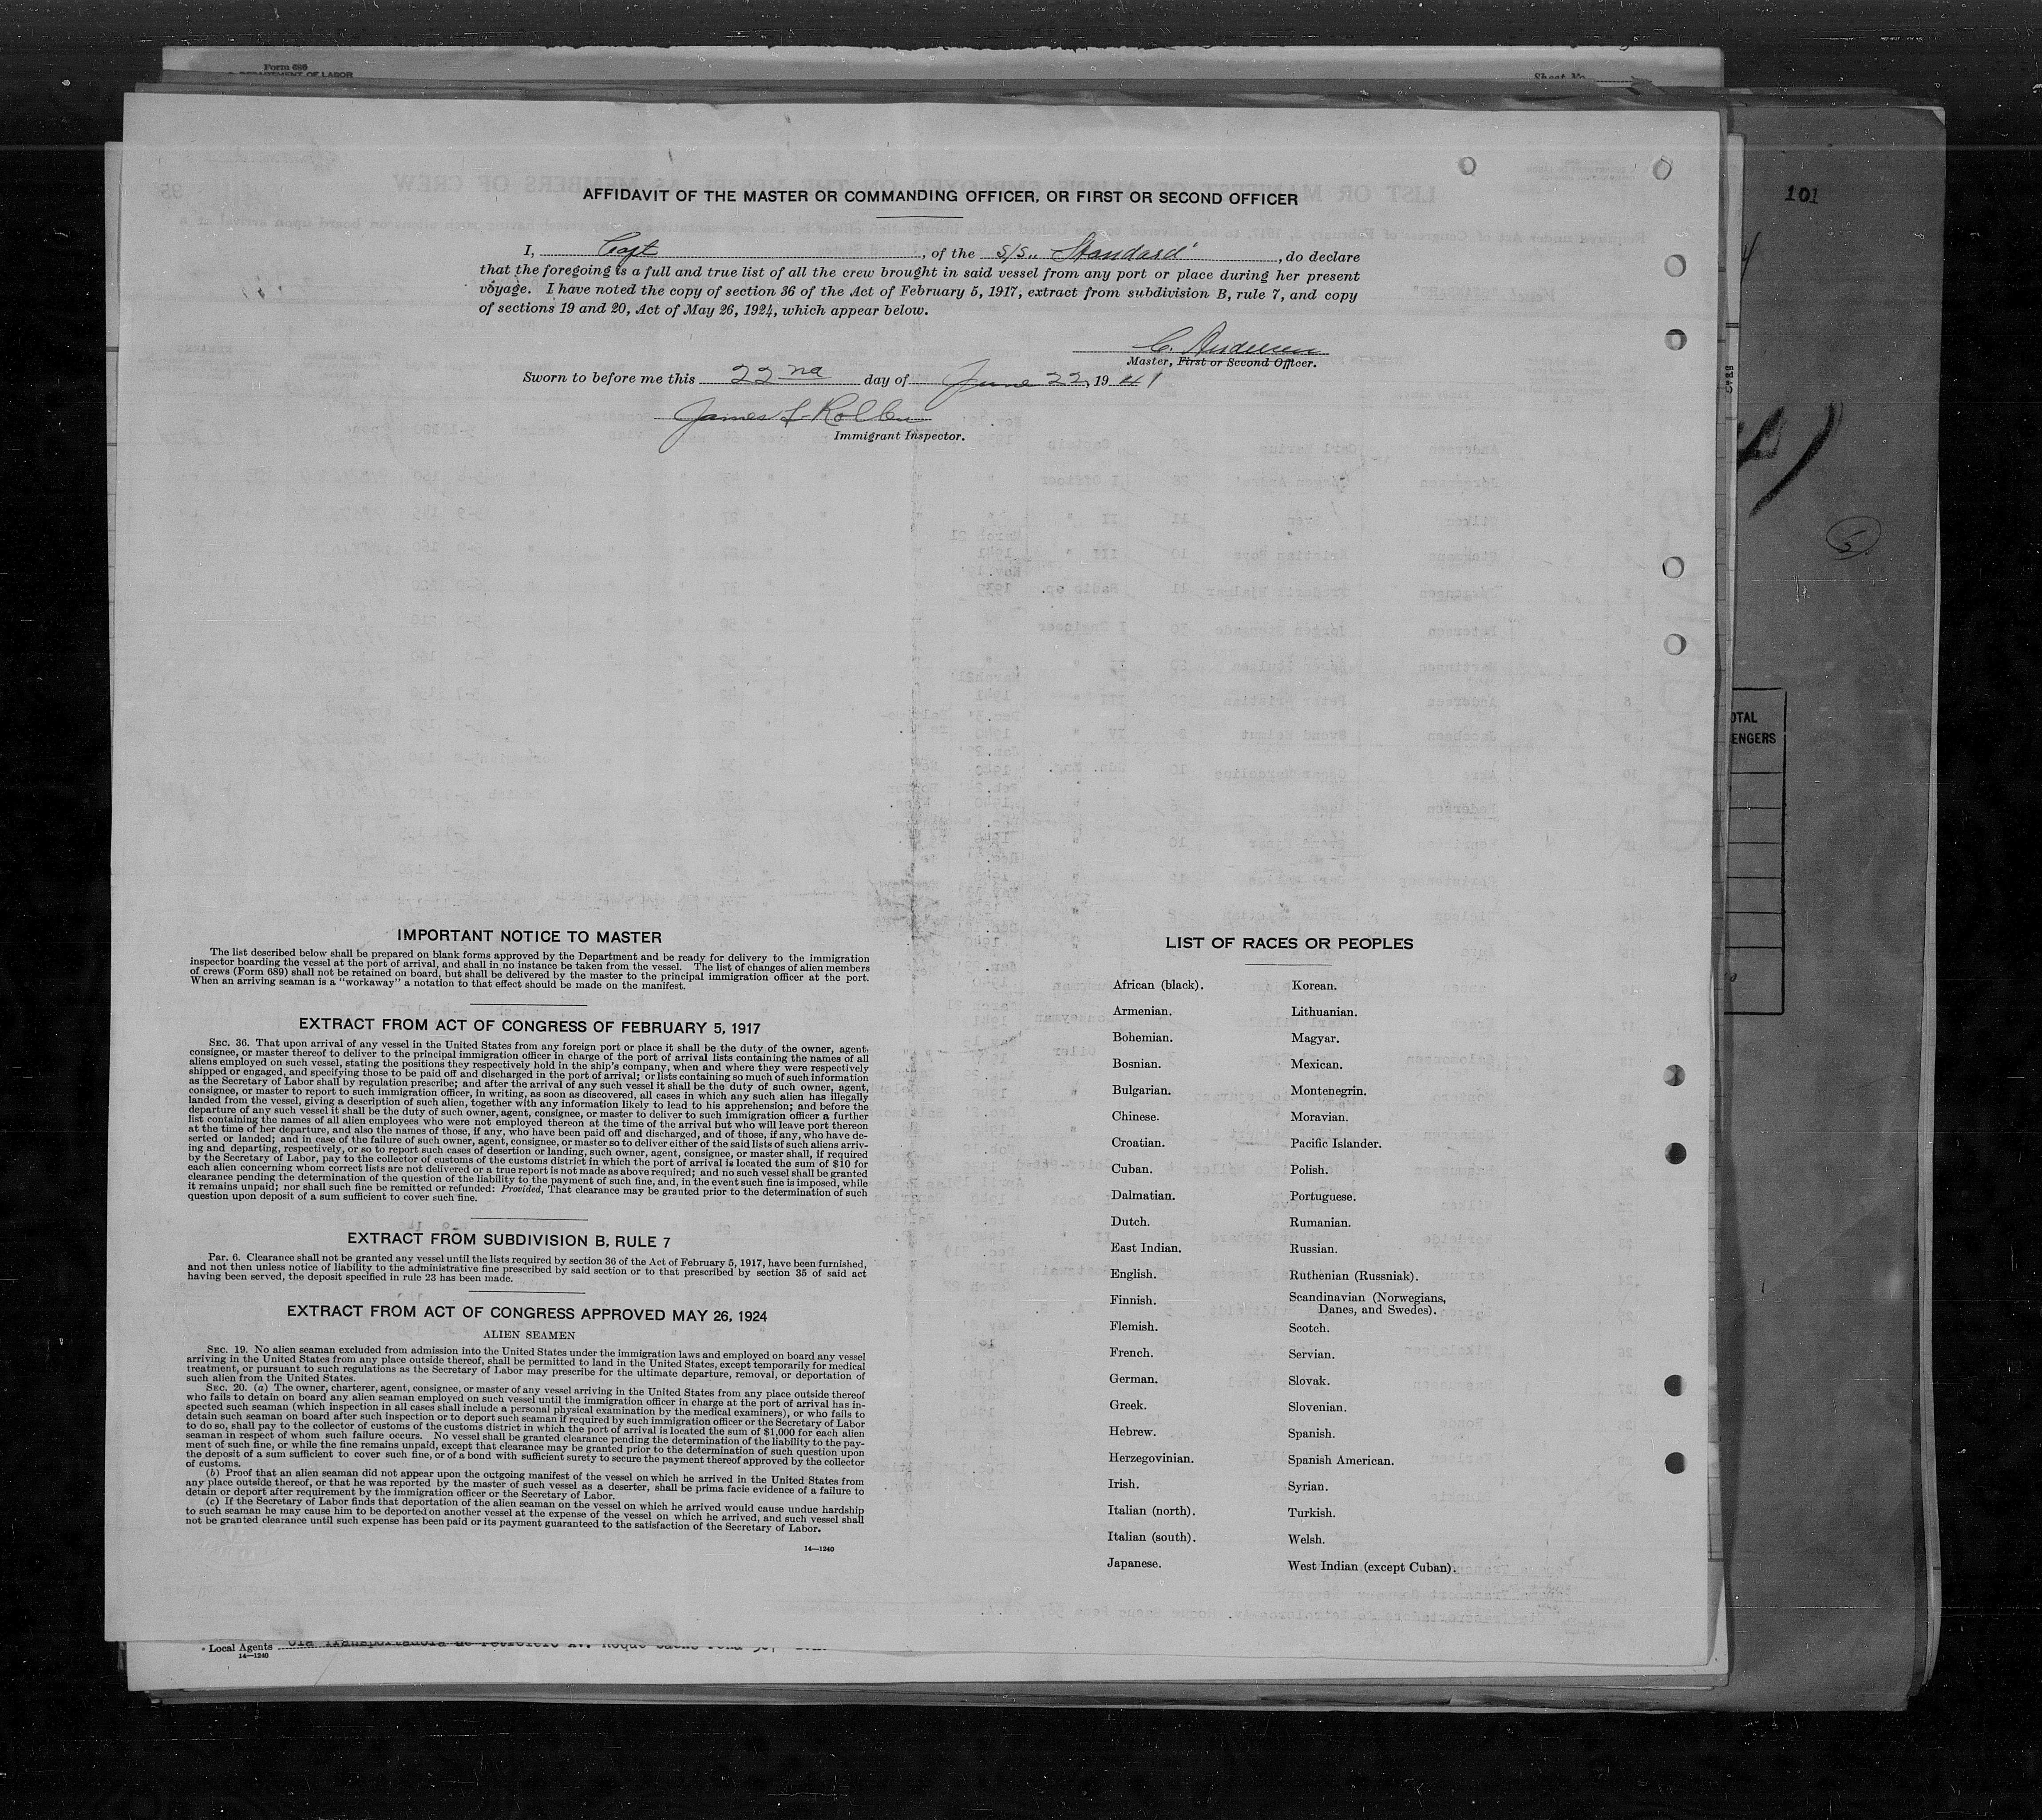 Form 689
DEPARTMENT OF LABOR
Sheet No.
101
AFFIDAVIT OF THE MASTER OR COMMANDING OFFICER, OR FIRST OR SECOND OFFICER
I, Capt, of the S/S. "Standard", do declare
that the foregoing is a full and true list of all the crew brought in said vessel from any port or place during her present
voyage. I have noted the copy of section 36 of the Act of February 5, 1917, extract from subdivision B, rule 7, and copy
of sections 19 and 20, Act of May 26, 1924, which appear below.
C. Andersen
Master, First or Second Officer.
Sworn to before me this 22nd day of June 22, 1941
James
Immigrant Inspector.
OTAL
ENGERS
IMPORTANT NOTICE TO MASTER
The list described below shall be prepared on blank forms approved by the Department and be ready for delivery to the immigration
inspector boarding the vessel at the port of arrival, and shall in no instance be taken from the vessel. The list of changes of alien members
of crews (Form 689) shall not be retained on board, but shall be delivered by the master to the principal immigration officer at the port.
When an arriving seaman is a "workaway" a notation to that effect should be made on the manifest.
EXTRACT FROM ACT OF CONGRESS OF FEBRUARY 5, 1917
SEC. 36. That upon arrival of any vessel in the United States from any foreign port or place it shall be the duty of the owner, agent,
consignee, or master thereof to deliver to the principal immigration officer in charge of the port of arrival lists containing the names of all
aliens employed on such vessel, stating the positions they respectively hold in the ship's company, when and where they were respectively
shipped or engaged, and specifying those to be paid off and discharged in the port of arrival; or lists containing so much of such information
as the Secretary of Labor shall by regulation prescribe; and after the arrival of any such vessel it shall be the duty of such owner, agent,
consignee, or master to report to such immigration officer, in writing, as soon as discovered, all cases in which any such alien has illegally
landed from the vessel, giving a description of such alien, together with any information likely to lead to his apprehension; and before the
departure of any such vessel it shall be the duty of such owner, agent, consignee, or master to deliver to such immigration officer a further
list containing the names of all alien employees who were not employed thereon at the time of the arrival but who will leave port thereon
at the time of her departure, and also the names of those, if any, who have been paid off and discharged, and of those, if any, who have de-
serted or landed; and in case of the failure of such owner, agent, consignee, or master so to deliver either of the said lists of such aliens arriv-
ing and departing, respectively, or so to report such cases of desertion or landing, such owner, agent, consignee, or master shall, if required
by the Secretary of Labor, pay to the collector of customs of the customs district in which the port of arrival is located the sum of $10 for
each alien concerning whom correct lists are not delivered or a true report is not made as above required; and no such vessel shall be granted
clearance pending the determination of the question of the liability to the payment of such fine, and, in the event such fine is imposed, while
it remains unpaid; nor shall such fine be remitted or refunded: Provided, That clearance may be granted prior to the determination of such
question upon deposit of a sum sufficient to cover such fine.
EXTRACT FROM SUBDIVISION B, RULE 7
Par. 6. Clearance shall not be granted any vessel until the lists required by section 36 of the Act of February 5, 1917, have been furnished,
and not then unless notice of liability to the administrative fine prescribed by said section or to that prescribed by section 35 of said act
having been served, the deposit specified in rule 23 has been made.
EXTRACT FROM ACT OF CONGRESS APPROVED MAY 26, 1924
ALIEN SEAMEN
SEC. 19. No alien seaman excluded from admission into the United States under the immigration laws and employed on board any vessel
arriving in the United States from any place outside thereof, shall be permitted to land in the United States, except temporarily for medical
treatment, or pursuant to such regulations as the Secretary of Labor may prescribe for the ultimate departure, removal, or deportation of
such alien from the United States.
SEC. 20. (a) The owner, charterer, agent, consignee, or master of any vessel arriving in the United States from any place outside thereof
who fails to detain on board any alien seaman employed on such vessel until the immigration officer in charge at the port of arrival has in-
spected such seaman (which inspection in all cases shall include a personal physical examination by the medical examiners), or who fails to
detain such seaman on board after such inspection or to deport such seaman if required by such immigration officer or the Secretary of Labor
to do so, shall pay to the collector of customs of the customs district in which the port of arrival is located the sum of $1,000 for each alien
seaman in respect of whom such failure occurs. No vessel shall be granted clearance pending the determination of the liability to the pay-
ment of such fine, or while the fine remains unpaid, except that clearance may be granted prior to the determination of such question upon
the deposit of a sum sufficient to cover such fine, or of a bond with sufficient surety to secure the payment thereof approved by the collector
of customs.
(b) Proof that an alien seaman did not appear upon the outgoing manifest of the vessel on which he arrived in the United States from
any place outside thereof, or that he was reported by the master of such vessel as a deserter, shall be prima facie evidence of a failure to
detain or deport after requirement by the immigration officer or the Secretary of Labor.
(c) If the Secretary of Labor finds that deportation of the alien seaman on the vessel on which he arrived would cause undue hardship
to such seaman he may cause him to be deported on another vessel at the expense of the vessel on which he arrived, and such vessel shall
not be granted clearance until such expense has been paid or its payment guaranteed to the satisfaction of the Secretary of Labor.
14—1240
LIST OF RACES OR PEOPLES
African (black). Korean.
Armenian. Lithuanian.
Bohemian. Magyar.
Bosnian. Mexican.
Bulgarian. Montenegrin.
Chinese. Moravian.
Croatian. Pacific Islander.
Cuban. Polish.
Dalmatian. Portuguese.
Dutch. Rumanian.
East Indian. Russian.
English. Ruthenian (Russniak).
Finnish. Scandinavian (Norwegians,
Danes, and Swedes).
Flemish. Scotch.
French. Servian.
German. Slovak.
Greek. Slovenian.
Hebrew. Spanish.
Herzegovinian. Spanish American.
Irish. Syrian.
Italian (north). Turkish.
Italian (south). Welsh.
Japanese. West Indian (except Cuban).
Local Agents Cia Transportadora de Petroleo Av. Roque
14—1240